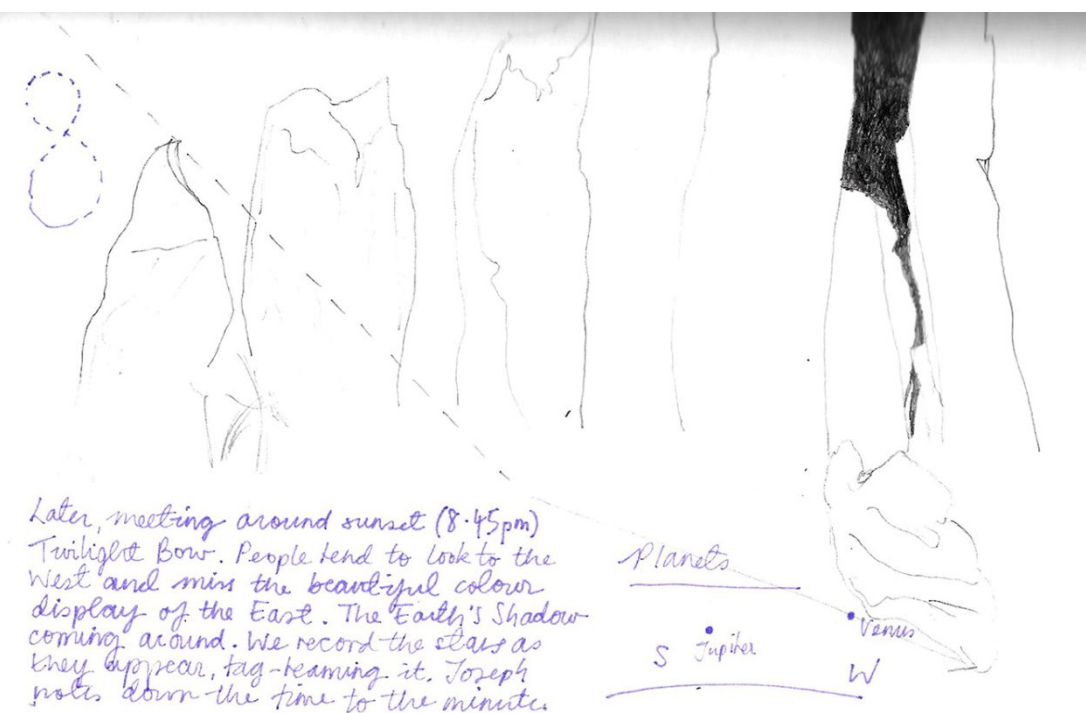 Later, meeting around sunset (8.45pm)
Twilight Bow. People tend to look to the
West and miss the beautiful colour
display of the East. The Earth's Shadow
coming around. We record the stars as
they appear, tag-teaming it. Joseph
notes down the time to the minute.
Planets
Venus
Jupiter
S
W